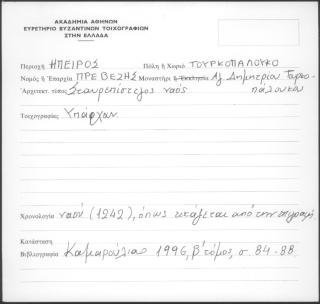 ΑΚΑΔΗΜΙΑ ΑΘΗΝΩΝ
ΕΥΡΕΤΗΡΙΟ ΒΥΖΑΝΤΙΝΩΝ ΤΟΙΧΟΓΡΑΦΙΩΝ
ΣΤΗΝ ΕΛΛΑΔΑ
Περιοχή ΗΠΕΙΡΟΣ Πόλη ή Χωριό ΤΟΥΡΚΟΠΑΛΟΥΚΟ
Νομός ή Ἐπαρχία ΠΡΕΒΕΖΗΣ Μοναστήρι ή Ἐκκλησία Αγ. Δημητρίου Τουρκο-
Ἀρχιτεκτ. τύπος Σταυρεπίστεγος ναός πάλουκου
Τοιχογραφίες Υπάρχουν
Χρονολογία ναού (1242), όπως εικάζεται από την επιγραφή
Κατάσταση
Βιβλιογραφία Καμαρούλιας 1996, β' τόμος, σ. 84-88